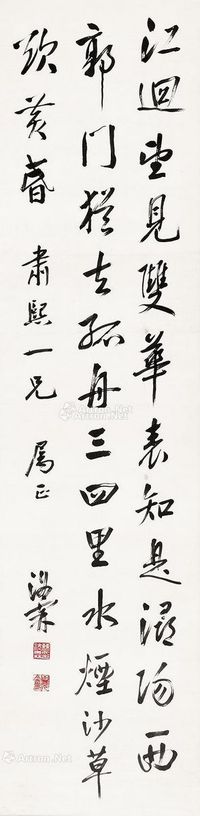 江迴望見雙華表知是潯陽西
郭門猶去孤舟三四里水煙沙草
欲黃昏 肅熙一兄 屬正
Artron.Net